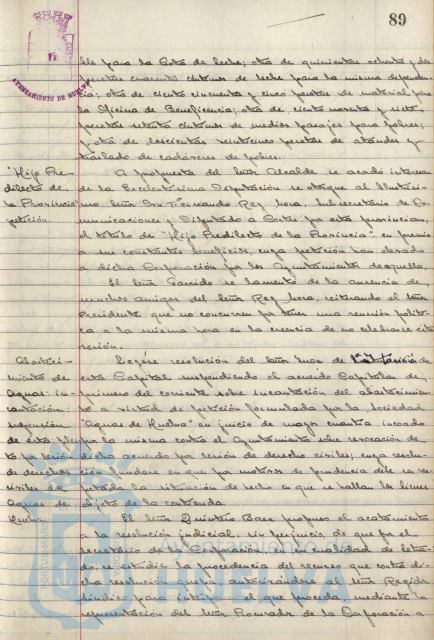 89
AYUNTAMIENTO DE HUELVA
ble para la Gota de leche; otra de quinientas ochenta y dos
pesetas cuarenta céntimos de leche para la misma dependen-
cia; otra de ciento cincuenta y cinco pesetas de material para
la Oficina de Beneficencia; otra de ciento noventa y siete
pesetas setenta céntimos de medios pasajes para pobres;
y otra de doscientas veinticinco pesetas de ataúdes y
traslado de cadáveres de pobres.
"Hijo Pre-
dilecto de
la Provincia"
petición.
A propuesta del Señor Alcalde se acordó interesar
de la Excelentísima Diputación se otorgue al Ilustrísi-
mo Señor Don Fernando Rey Mora, Subsecretario de Co-
municaciones y Diputado a Cortes por esta provincia,
el título de "Hijo Predilecto de la Provincia" en premio
a sus constantes beneficios, cuya petición han elevado
a dicha Corporación por los Ayuntamientos de aquella.
El Señor Garrido se lamentó de la ausencia de
muchos amigos del Señor Rey Mora, reiterando el Señor
Presidente que no concurren por tener una reunión políti-
ca a la misma hora en la creencia de no celebrarse esta
sesión.
Abasteci-
miento de
Aguas: in-
cautación:
suspensión
de ésta
por lesión
de derechos
civiles de
Aguas de
Huelva
Leyóse resolución del Señor Juez de
esta Capital suspendiendo el acuerdo Capitular de
primero del corriente sobre incautación del abastecimien-
to a virtud de petición formulada por la Sociedad
"Aguas de Huelva" en juicio de mayor cuantía incoado
por la misma contra el Ayuntamiento sobre revocación de
dicho acuerdo por lesión de derechos civiles; cuya resolu-
ción fundase en que por motivos de prudencia debe ser res-
petada la situación de hecho en que se hallan los bienes
objeto de la contienda.
El Señor Quintero Baez propuso el acatamiento
a la resolución judicial, sin perjuicio de que por el
Secretario de la Corporación en su cualidad de letra-
do, se estudie la procedencia del recurso que contra di-
cha resolución quepa, autorizándose al Señor Regidor
Síndico para interponer el que proceda, mediante la
representación del Señor Procurador de la Corporación a